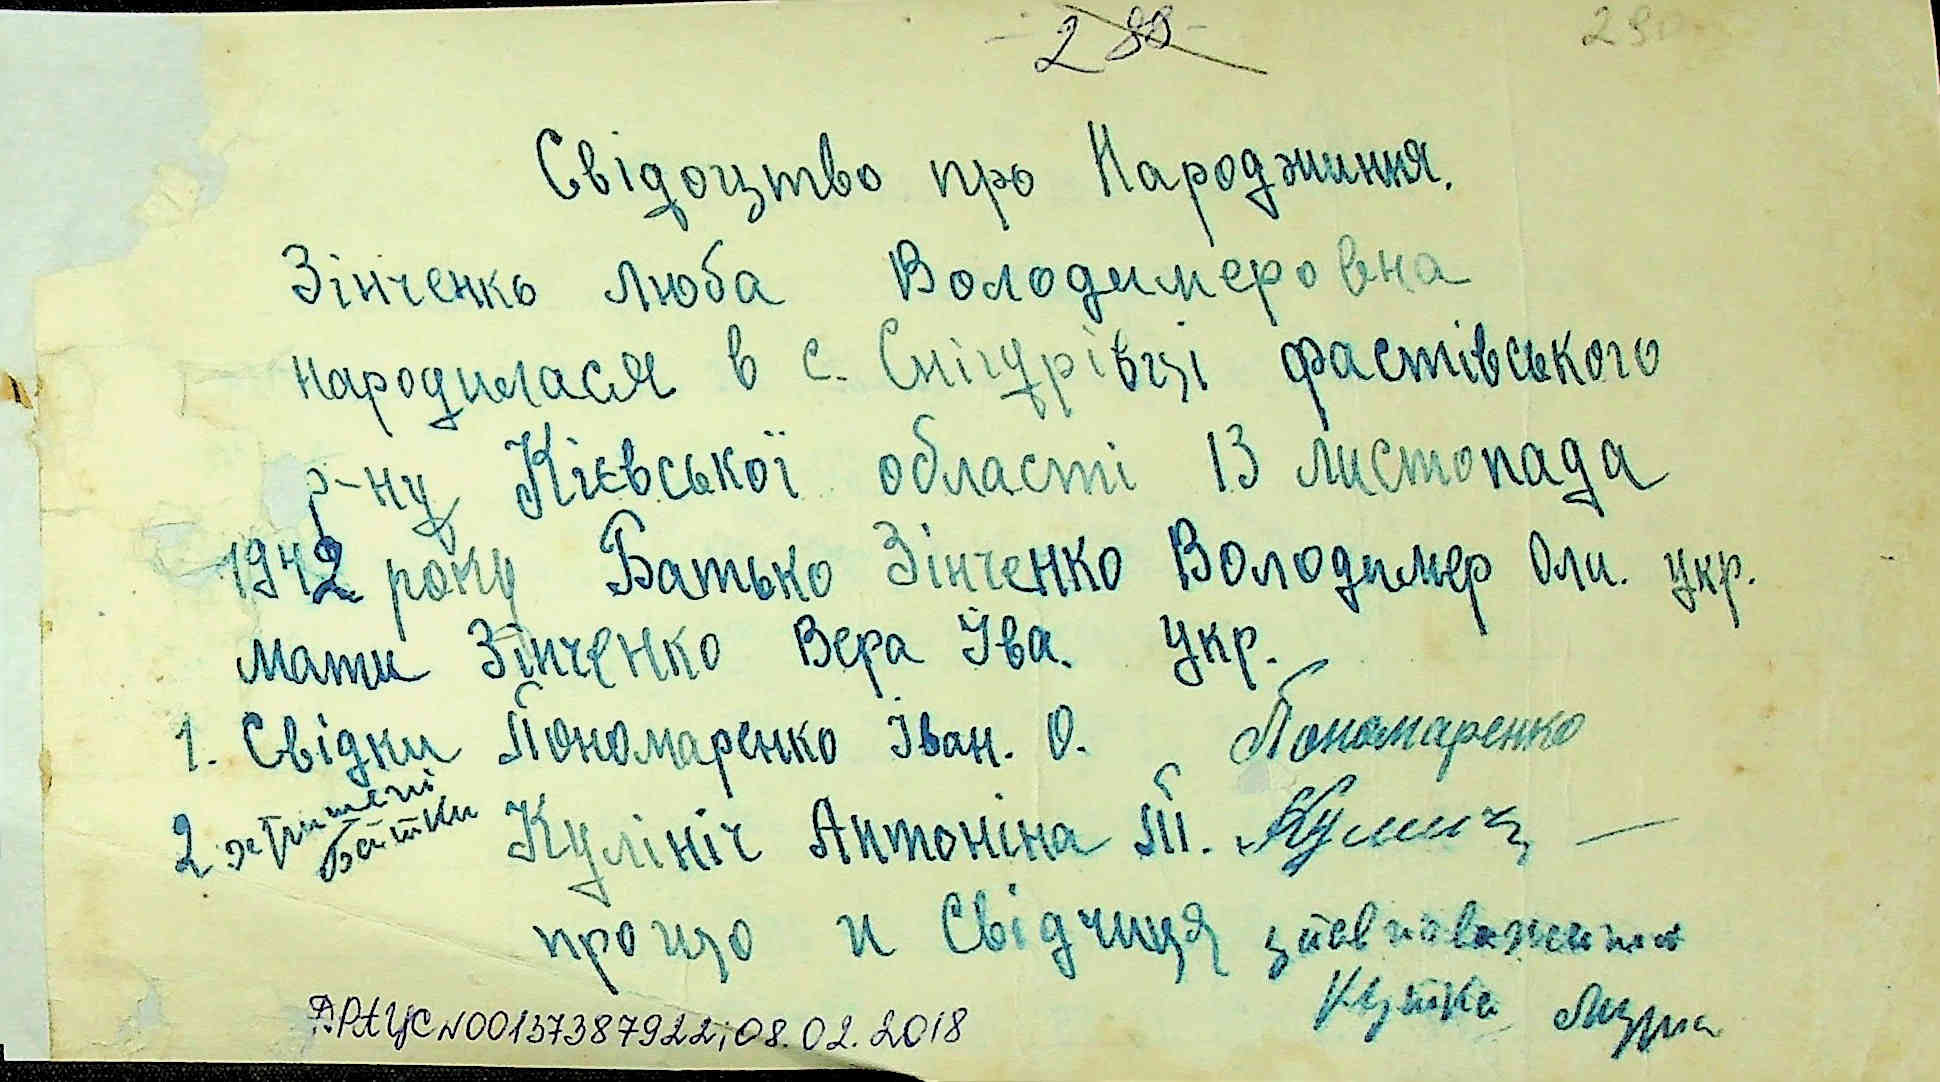 - 280 -
290
Свідоцтво про Народжиння.
Зінченко Люба Володимеровна
народилася в с. Снігурівці Фастівського
р-ну Кієвської області 13 листопада
1942 року Батько Зінченко Володимер Оли. укр.
мати Зінченко Вера Iва. Укр.
1. Свідки Пономаренко Iван. О. Пономаренко
2 хрищені батки Кулініч Антоніна П. Кулинич
про що и Свідчиця уповноважена
ДРАЦС №00137387922; 08.02.2018